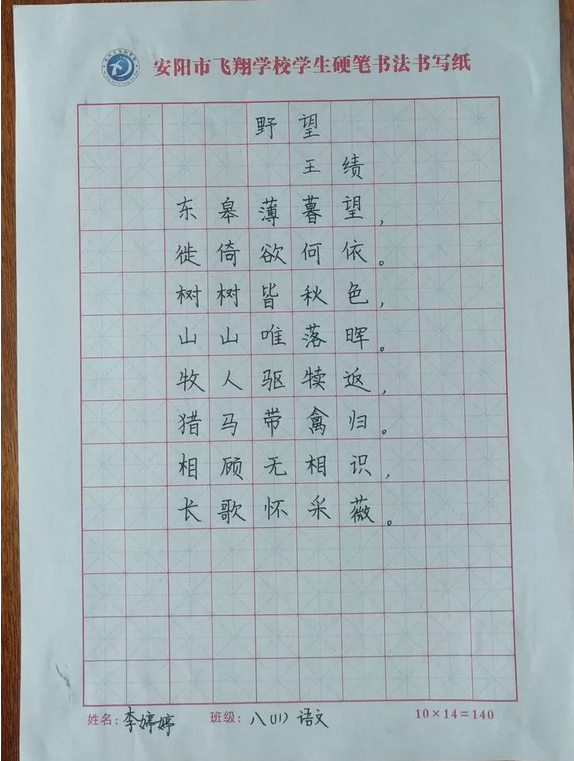 安阳市飞翔学校学生硬笔书法书写纸
野望
王绩
东皋薄暮望，
徙倚欲何依。
树树皆秋色，
山山唯落晖。
牧人驱犊返，
猎马带禽归。
相顾无相识，
长歌怀采薇。
姓名：李婷婷 班级：八(11)语文 10×14=140